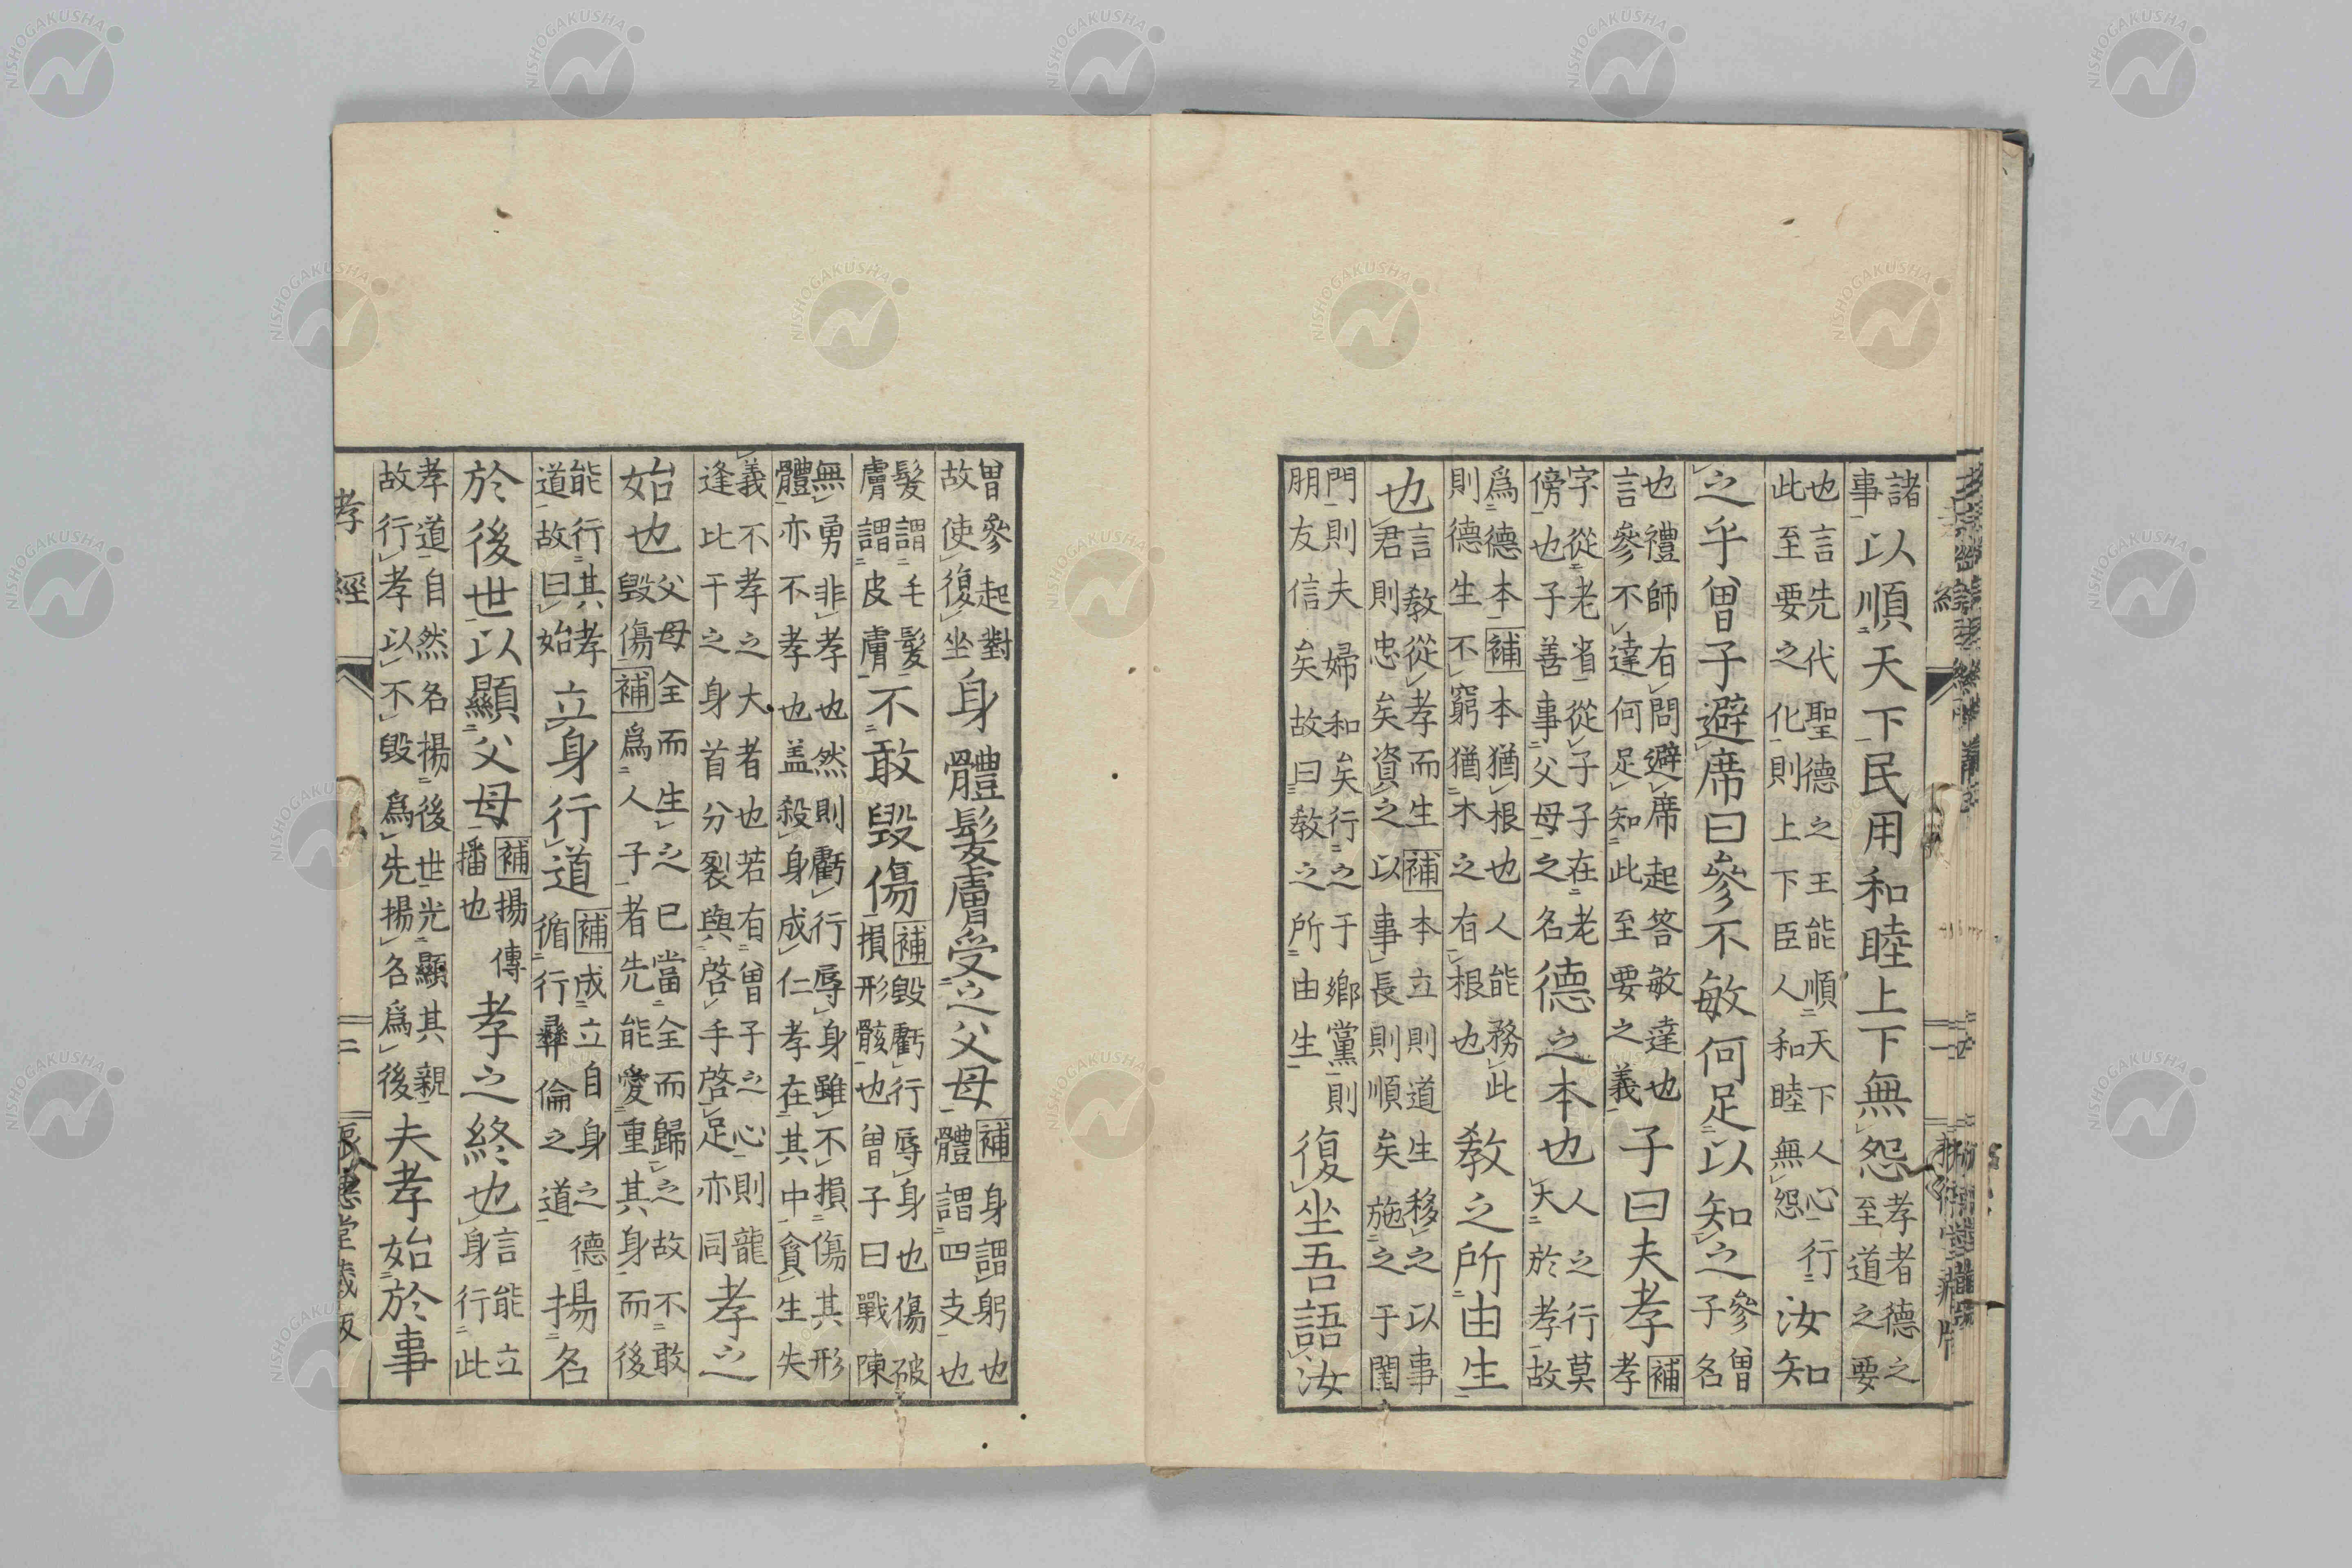 諸事以順天下民用和睦上下無怨孝者德之至道之要
也言先代聖德之王能順天下人心行此至要之化則上下臣人和睦無怨汝知
之乎曾子避席曰參不敏何足以知之參曾子名
也禮師有問避席起答敏達也言參不達何足知此至要之義子曰夫孝補孝
字從老省從子子在老傍也子善事父母之名德之本也人之行莫大於孝故
爲德本補本猶根也人能務此則德生不窮猶木之有根也教之所由生
也言教從孝而生補本立則道生移之以事君則忠矣資之以事長則順矣施之于閨
門則夫婦和矣行之于鄉黨則朋友信矣故曰教之所由生復坐吾語汝
曾參起對故使復坐身體髮膚受之父母補身謂躬也體謂四支也
髮謂毛髮膚謂皮膚不敢毀傷補毀虧行辱身也傷破損形骸也曾子曰戰陳
無勇非孝也然則虧行辱身雖不損傷其形體亦不孝也盖殺身成仁孝在其中貪生失
義不孝之大者也若有曾子之心則龍逢比干之身首分裂與啓手啓足亦同孝之
始也父母全而生之已當全而歸之故不敢毀傷補爲人子者先能愛重其身而後
能行其孝道故曰始立身行道補成立自身之德循行彝倫之道揚名
於後世以顯父母補揚傳播也孝之終也言能立身行此
孝道自然名揚後世光顯其親故行孝以不毀爲先揚名爲後夫孝始於事
孝經 二
NISHOGAKUSHA